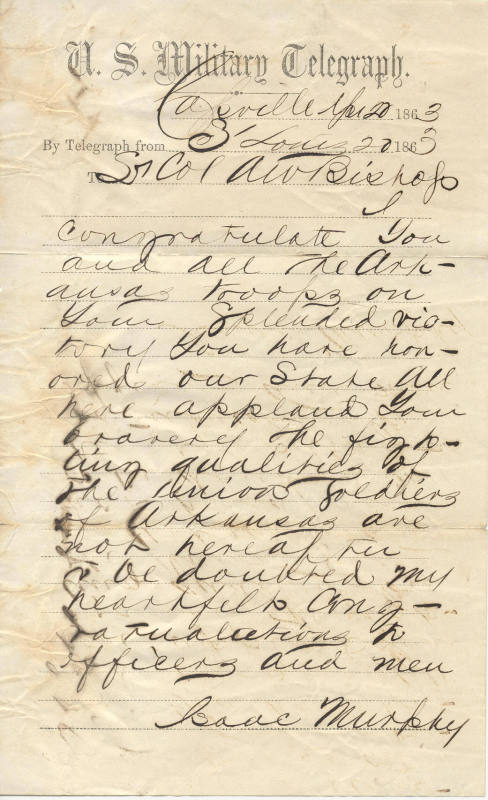 U. S. Military Telegraph.
Cassville Apr 20 1863
By Telegraph from St Louis 20 1863
To Lt Col A W Bishop
I
congratulate You
and all the Ark-
ansas troops on
Your Splended vic-
tory You have hon-
ored our State All
here applaud Your
bravery the figh-
ting qualities of
the Union Soldiers
of Arkansas are
not hereafter
to be doubted my
heartfelt Cong-
ratualations to
officers and men
Isaac Murphy